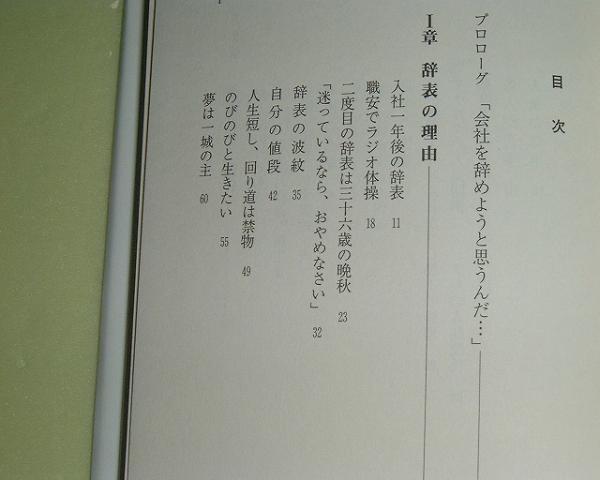 目次
プロローグ 「会社を辞めようと思うんだ…」
I章 辞表の理由
入社一年後の辞表 11
職安でラジオ体操 18
二度目の辞表は三十六歳の晩秋 23
「迷っているなら、おやめなさい」 32
辞表の波紋 35
自分の値段 42
人生短し、回り道は禁物 49
のびのびと生きたい 55
夢は一城の主 60